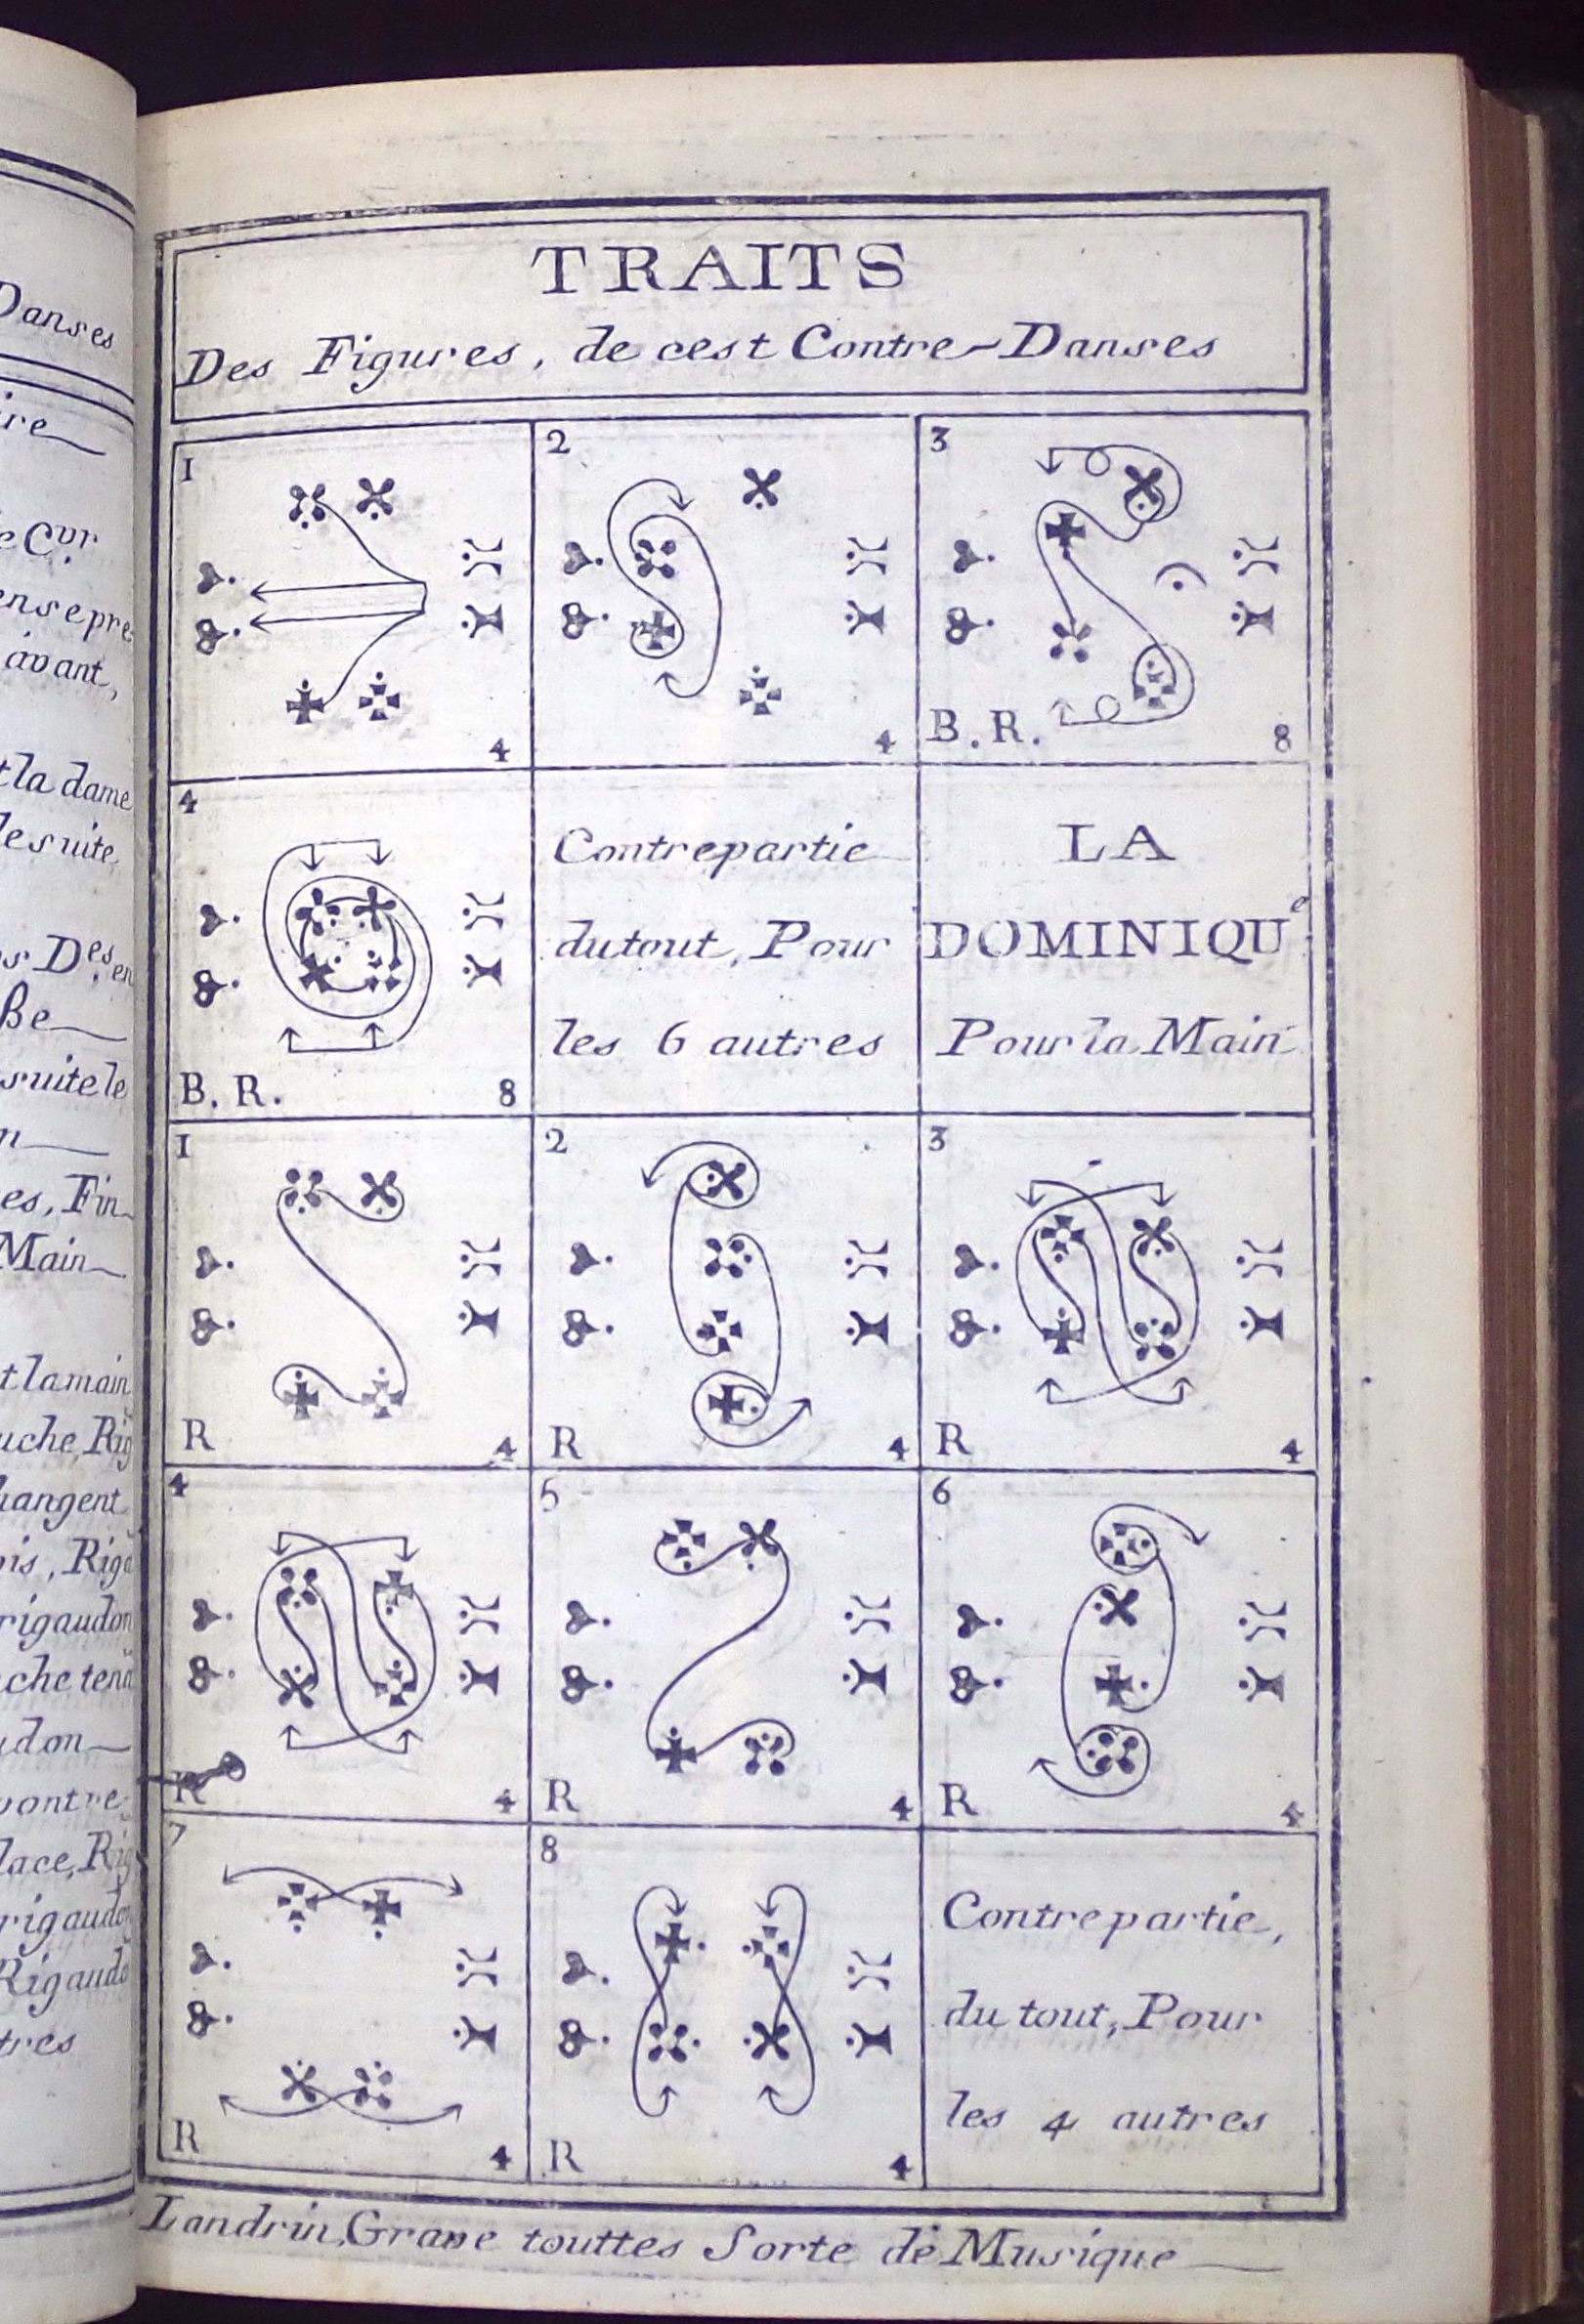 Danses
ire
e Cvr.
ens e pre
avant,
t la dame
de suite
s Des. en
Be
suite le
n
es, Fin
Main
t la main
uche, Rig
hangent
is, Rig
rigaudon
che tena
udon
contre
lace, Rig
rigaudo
Rigaudo
tres
TRAITS
Des Figures, de cest Contre-Danses
1
4
2
4
3
B. R.
8
4
B. R.
8
Contrepartie
du tout, Pour
les 6 autres
LA
DOMINIQUe
Pour la Main
1
R
4
2
R
4
3
R
4
4
R
4
5
R
4
6
R
4
7
R
4
8
R
4
Contrepartie,
du tout, Pour
les 4 autres
Landrin, Grave touttes Sorte de Musique